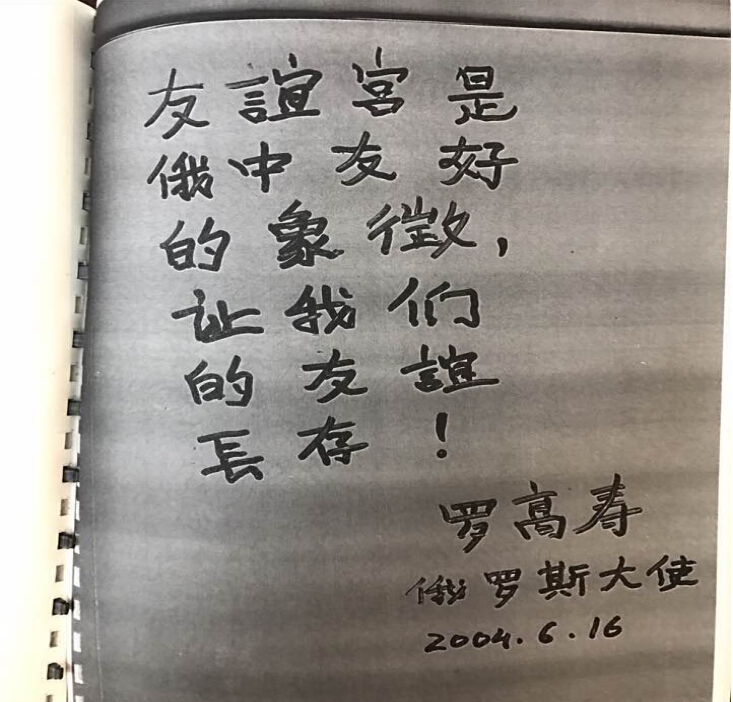 友誼宮是
俄中友好
的象徵，
让我们
的友誼
長存！
罗高寿
俄罗斯大使
2004.6.16